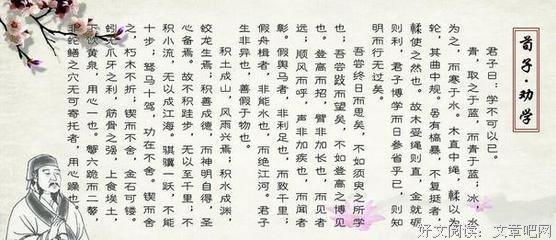 荀子·劝学
君子曰：学不可以已。
青，取之于蓝，而青于蓝；冰，水
为之，而寒于水。木直中绳，輮以为
轮，其曲中规。虽有槁暴，不复挺者，
輮使之然也。故木受绳则直，金就砺
则利，君子博学而日参省乎己，则知
明而行无过矣。
吾尝终日而思矣，不如须臾之所学
也；吾尝跂而望矣，不如登高之博见
也。登高而招，臂非加长也，而见者
远；顺风而呼，声非加疾也，而闻者
彰。假舆马者，非利足也，而致千里；
假舟楫者，非能水也，而绝江河。君子
生非异也，善假于物也。
积土成山，风雨兴焉；积水成渊，
蛟龙生焉；积善成德，而神明自得，圣
心备焉。故不积跬步，无以至千里；不
积小流，无以成江海。骐骥一跃，不能
十步；驽马十驾，功在不舍。锲而舍
之，朽木不折；锲而不舍，金石可镂。
蚓无爪牙之利，筋骨之强，上食埃土，
下饮黄泉，用心一也。蟹六跪而二螯，
非蛇鳝之穴无可寄托者，用心躁也。
好文阅读：文章吧网